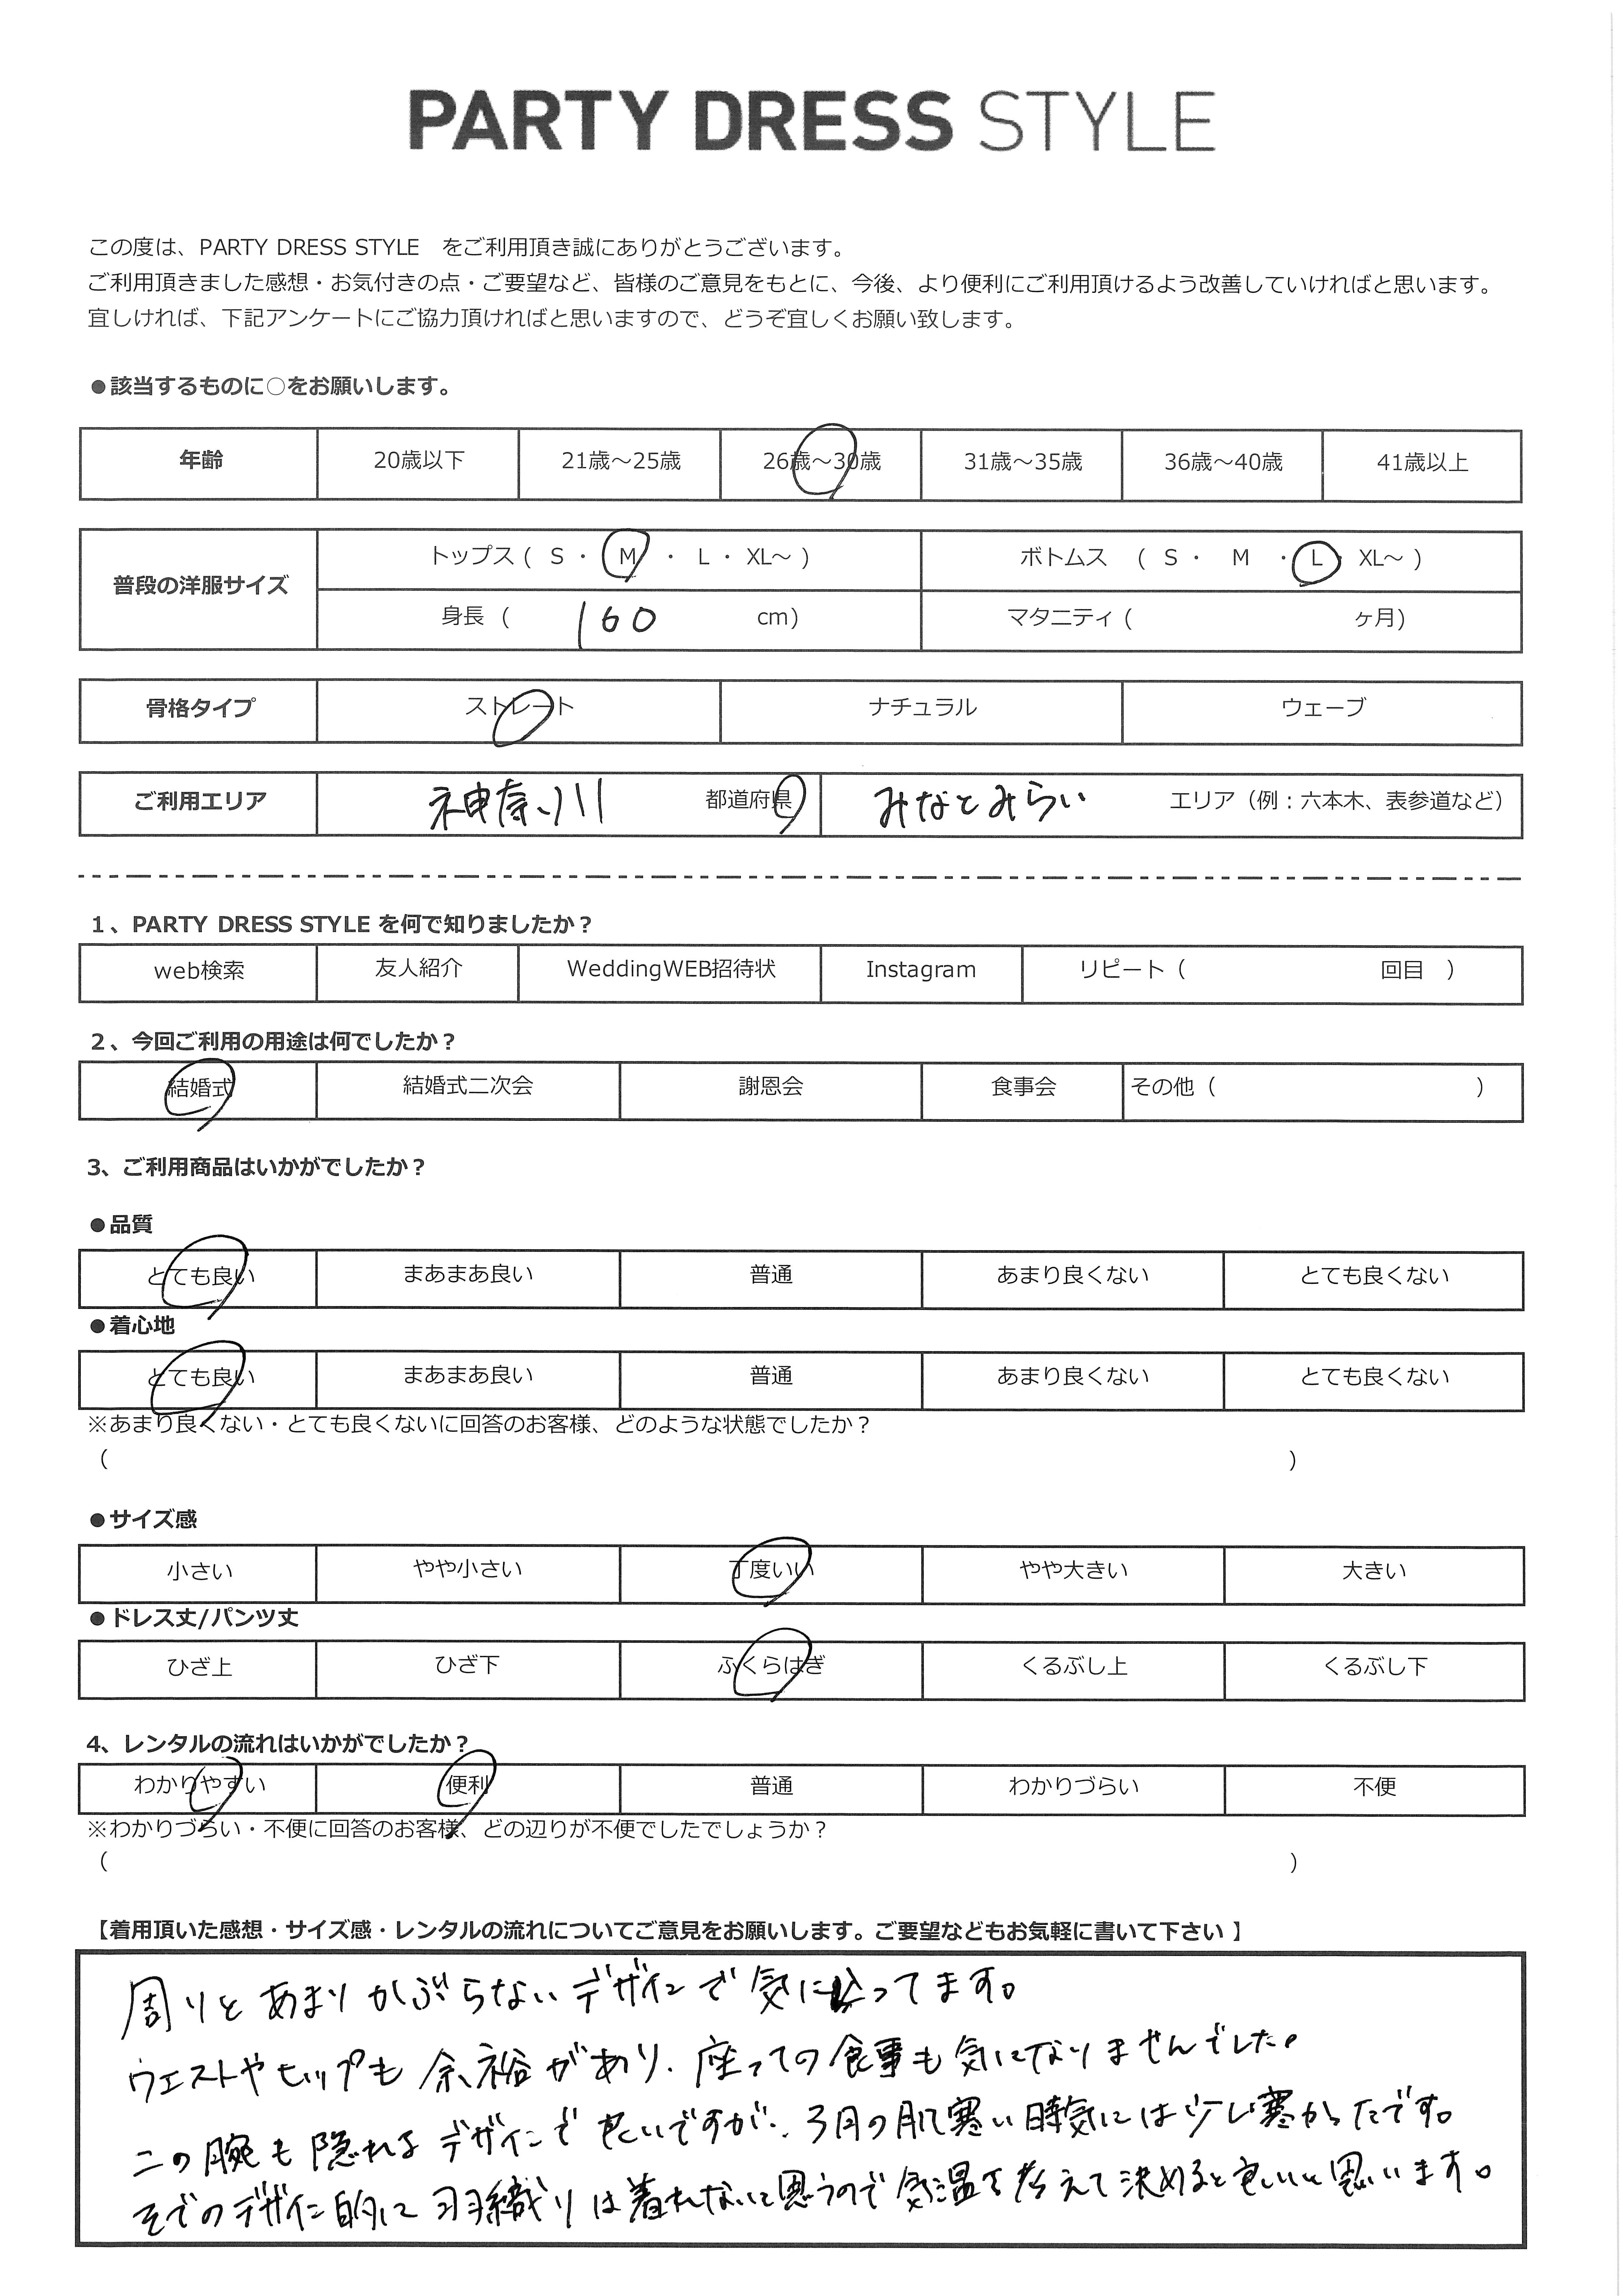 PARTY DRESS STYLE
この度は、PARTY DRESS STYLE　をご利用頂き誠にありがとうございます。
ご利用頂きました感想・お気付きの点・ご要望など、皆様のご意見をもとに、今後、より便利にご利用頂けるよう改善していければと思います。
宜しければ、下記アンケートにご協力頂ければと思いますので、どうぞ宜しくお願い致します。
●該当するものに○をお願いします。
年齢 20歳以下 21歳～25歳 26歳～30歳 31歳～35歳 36歳～40歳 41歳以上
普段の洋服サイズ トップス ( S ・ M ・ L ・ XL～ ) ボトムス ( S ・ M ・ L ・ XL～ )
身長 ( 160 cm) マタニティ ( ヶ月)
骨格タイプ ストレート ナチュラル ウェーブ
ご利用エリア 神奈川 都道府県 みなとみらい エリア（例：六本木、表参道など）
1、PARTY DRESS STYLE を何で知りましたか？
web検索 友人紹介 WeddingWEB招待状 Instagram リピート（ 回目 ）
2、今回ご利用の用途は何でしたか？
結婚式 結婚式二次会 謝恩会 食事会 その他（ ）
3、ご利用商品はいかがでしたか？
●品質
とても良い まあまあ良い 普通 あまり良くない とても良くない
●着心地
とても良い まあまあ良い 普通 あまり良くない とても良くない
※あまり良くない・とても良くないに回答のお客様、どのような状態でしたか？
（ ）
●サイズ感
小さい やや小さい 丁度いい やや大きい 大きい
●ドレス丈/パンツ丈
ひざ上 ひざ下 ふくらはぎ くるぶし上 くるぶし下
4、レンタルの流れはいかがでしたか？
わかりやすい 便利 普通 わかりづらい 不便
※わかりづらい・不便に回答のお客様、どの辺りが不便でしたでしょうか？
（ ）
【着用頂いた感想・サイズ感・レンタルの流れについてご意見をお願いします。ご要望などもお気軽に書いて下さい 】
周りとあまりかぶらないデザインで気に入ってます。
ウエストやヒップも余裕があり、座っての食事も気になりませんでした。
二の腕も隠れるデザインで良いですが、3月の肌寒い時気には少し寒かったです。
そでのデザイン的に羽織りは着れないと思うので気温を考えて決めると良いと思います。